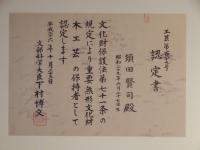 工芸第百五十号
認定書
須田賢司殿
昭和二十九年六月二十七日生
文化財保護法第七十一条の
規定により重要無形文化財
木工芸の保持者として
認定します
平成二十六年十月二十三日
文部科学大臣下村博文